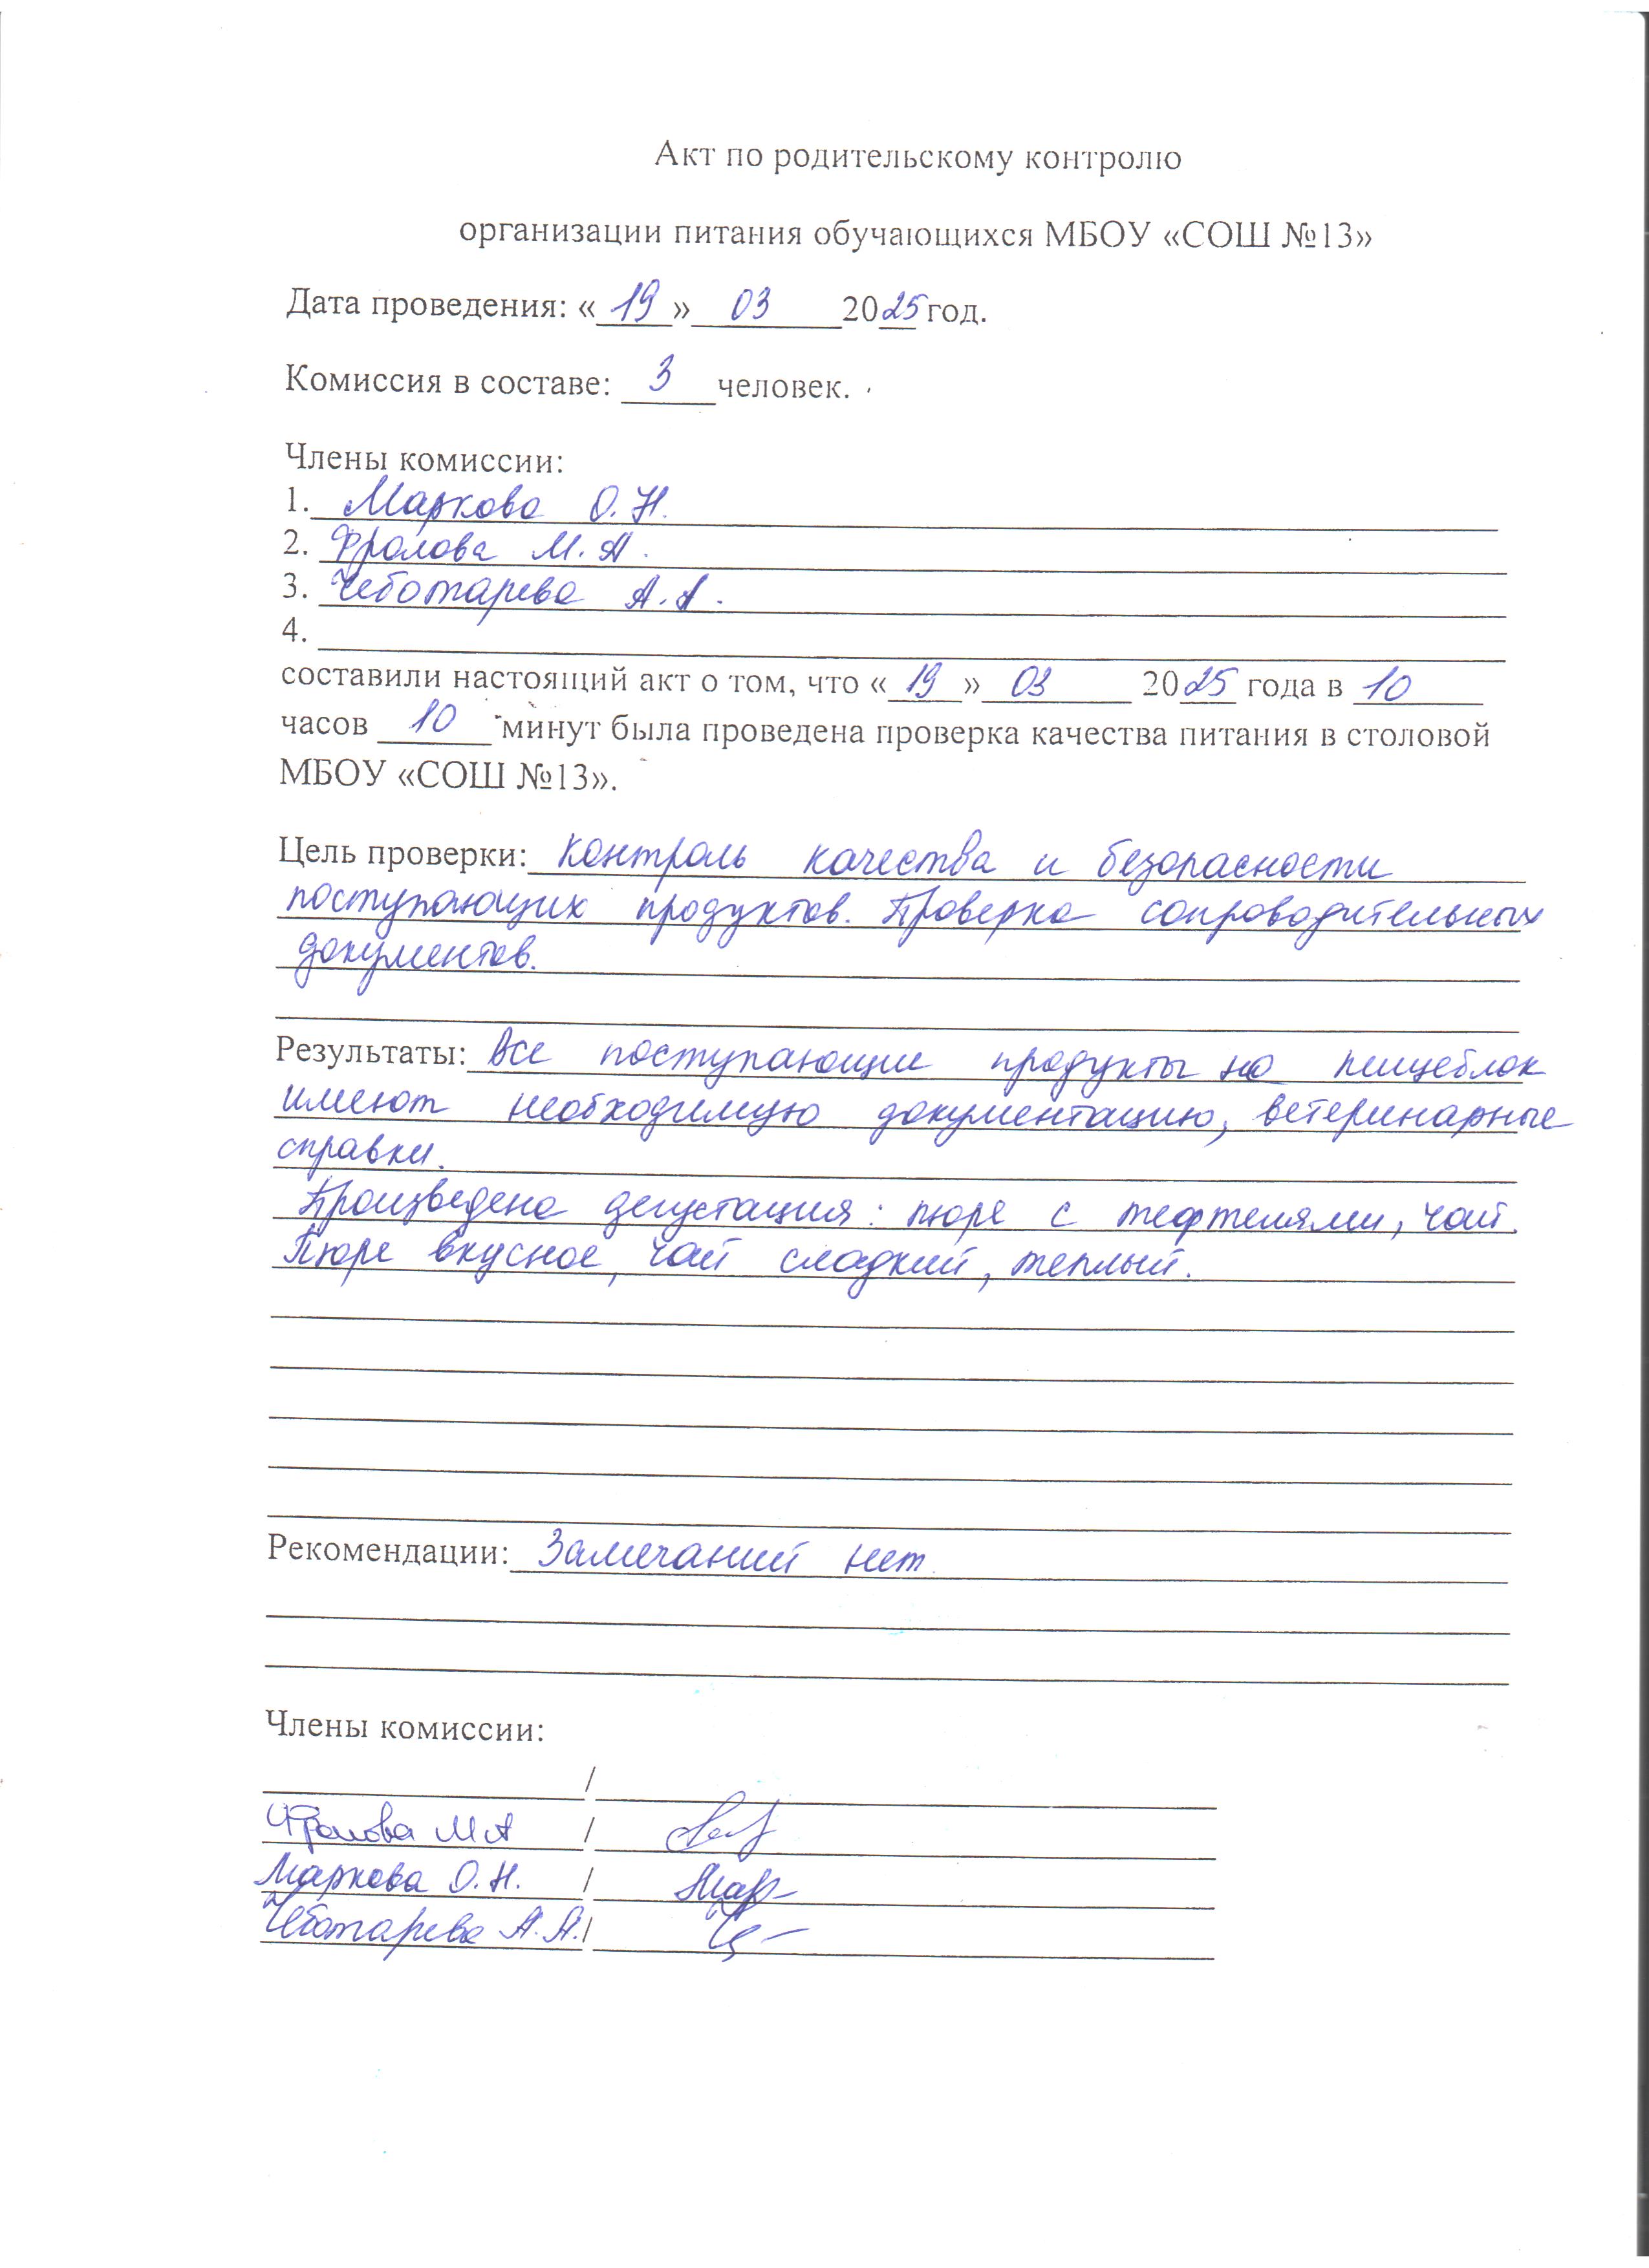 Акт по родительскому контролю
организации питания обучающихся МБОУ «СОШ №13»
Дата проведения: «19» 03 2025 год.
Комиссия в составе: 3 человек.
Члены комиссии:
1. Маркова О.Н.
2. Фролова М.А.
3. Чеботарева А.А.
4.
составили настоящий акт о том, что «19» 03 2025 года в 10
часов 10 минут была проведена проверка качества питания в столовой
МБОУ «СОШ №13».
Цель проверки: Контроль качества и безопасности
поступающих продуктов. Проверка сопроводительных
документов.
Результаты: Все поступающие продукты на пищеблок
имеют необходимую документацию, ветеринарные
справки.
Произведена дегустация: пюре с тефтелями, чай.
Пюре вкусное, чай сладкий, теплый.
Рекомендации: Замечаний нет.
Члены комиссии:
/
Фролова МА /
Маркова О.Н. / Мар
Чеботарева А.А. /